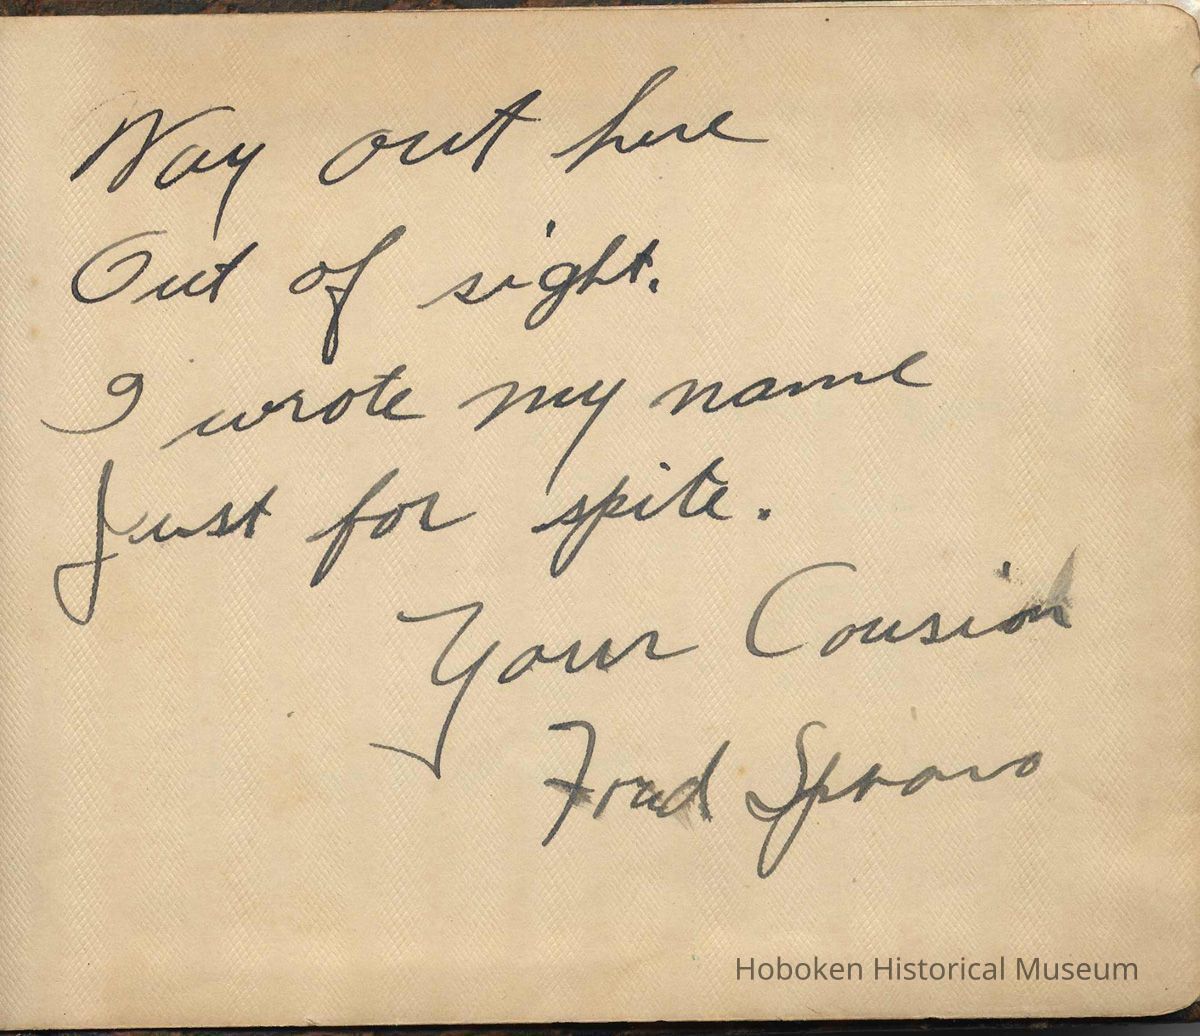 Way out here
Out of sight.
I wrote my name
Just for spite.
Your Cousin
Fred
Hoboken Historical Museum